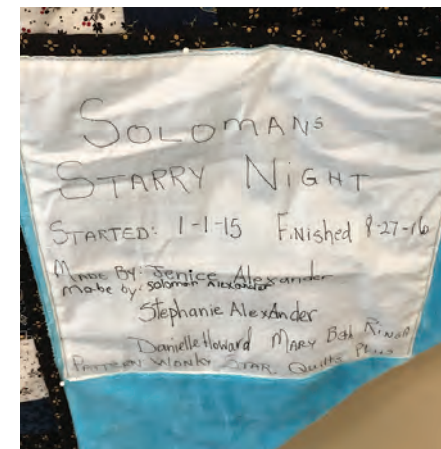 SOLOMANS
STARRY NIGHT
STARTED: 1-1-15 FiNished 8-27-16
MADE BY: Jenice Alexander
made by: Solomon Alexander
Stephanie AlexAnder
Danielle Howard MARY Beth
PATTERN WONKY STAR Quilts Plus